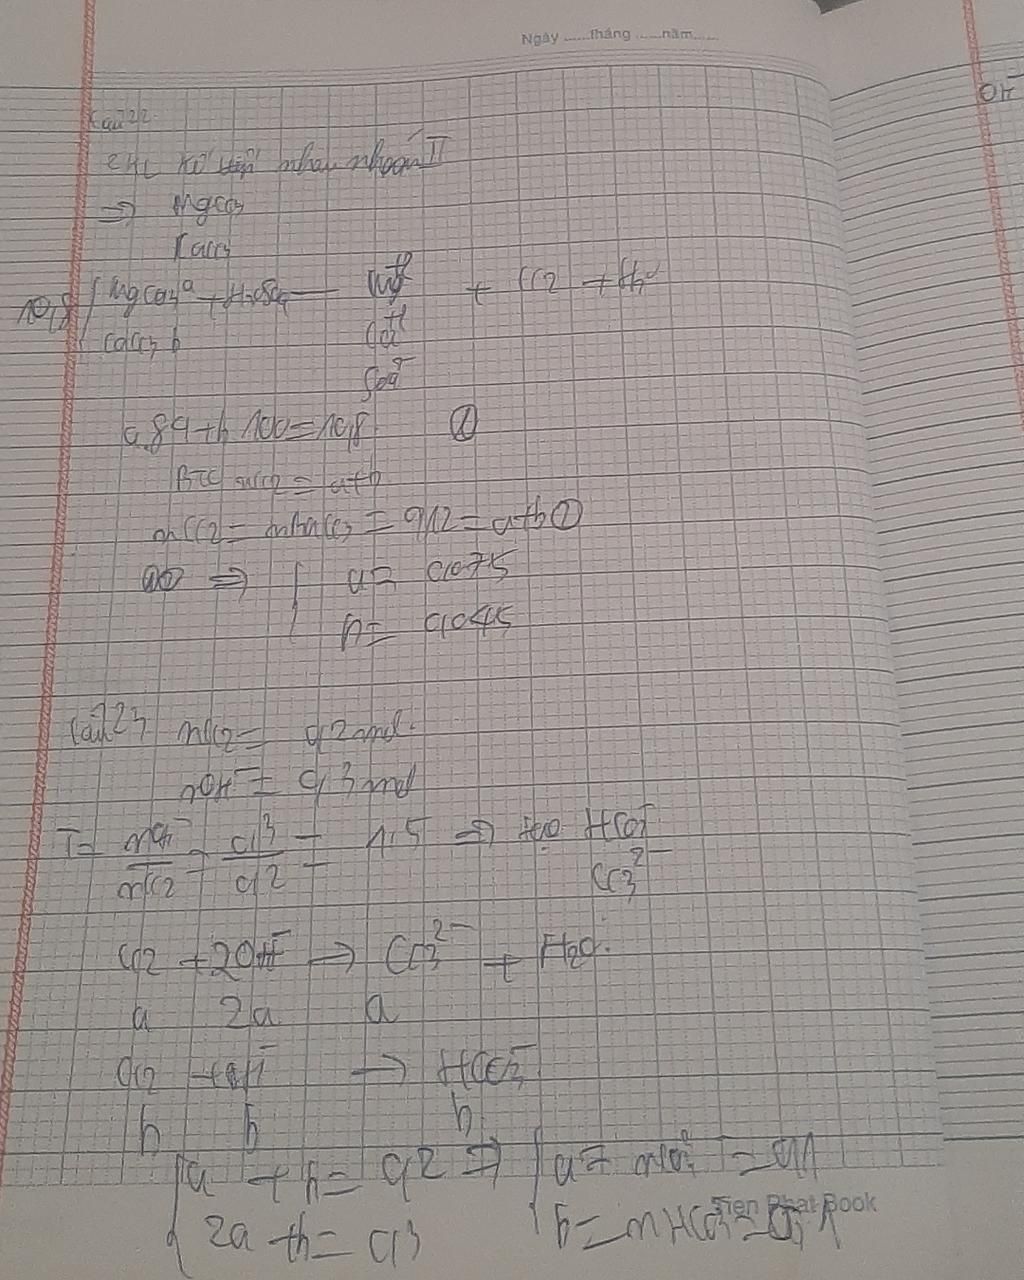 Ngày ......tháng ......năm......
OH⁻
Câu 22
2KL kế tiếp nhau nhóm II
⇒ MgCO3
CaCO3
10,8 { MgCO3 a + H2SO4 — Mg²⁺ + CO2 + H2O
CaCO3 b Ca²⁺
SO4²⁻
a.84 + b 100 = 10,8 ①
BTC nCO2 = a+b
nCO2 = nBaCO3 = 0,12 = a+b ②
①② ⇒ { a = 0,075
b = 0,045
Câu 23 nCO2 = 0,2 mol.
nOH⁻ = 0,3 mol
T = nOH⁻/nCO2 = 0,3/0,2 = 1,5 ⇒ HCO3⁻
CO3²⁻
CO2 + 2OH⁻ → CO3²⁻ + H2O.
a 2a a
CO2 + OH⁻ → HCO3⁻
b b b
{ a + b = 0,2 ⇒ { a = nCO3²⁻ = 0,1
2a + b = 0,3 b = nHCO3⁻ = 0,1
Tien Phat Book